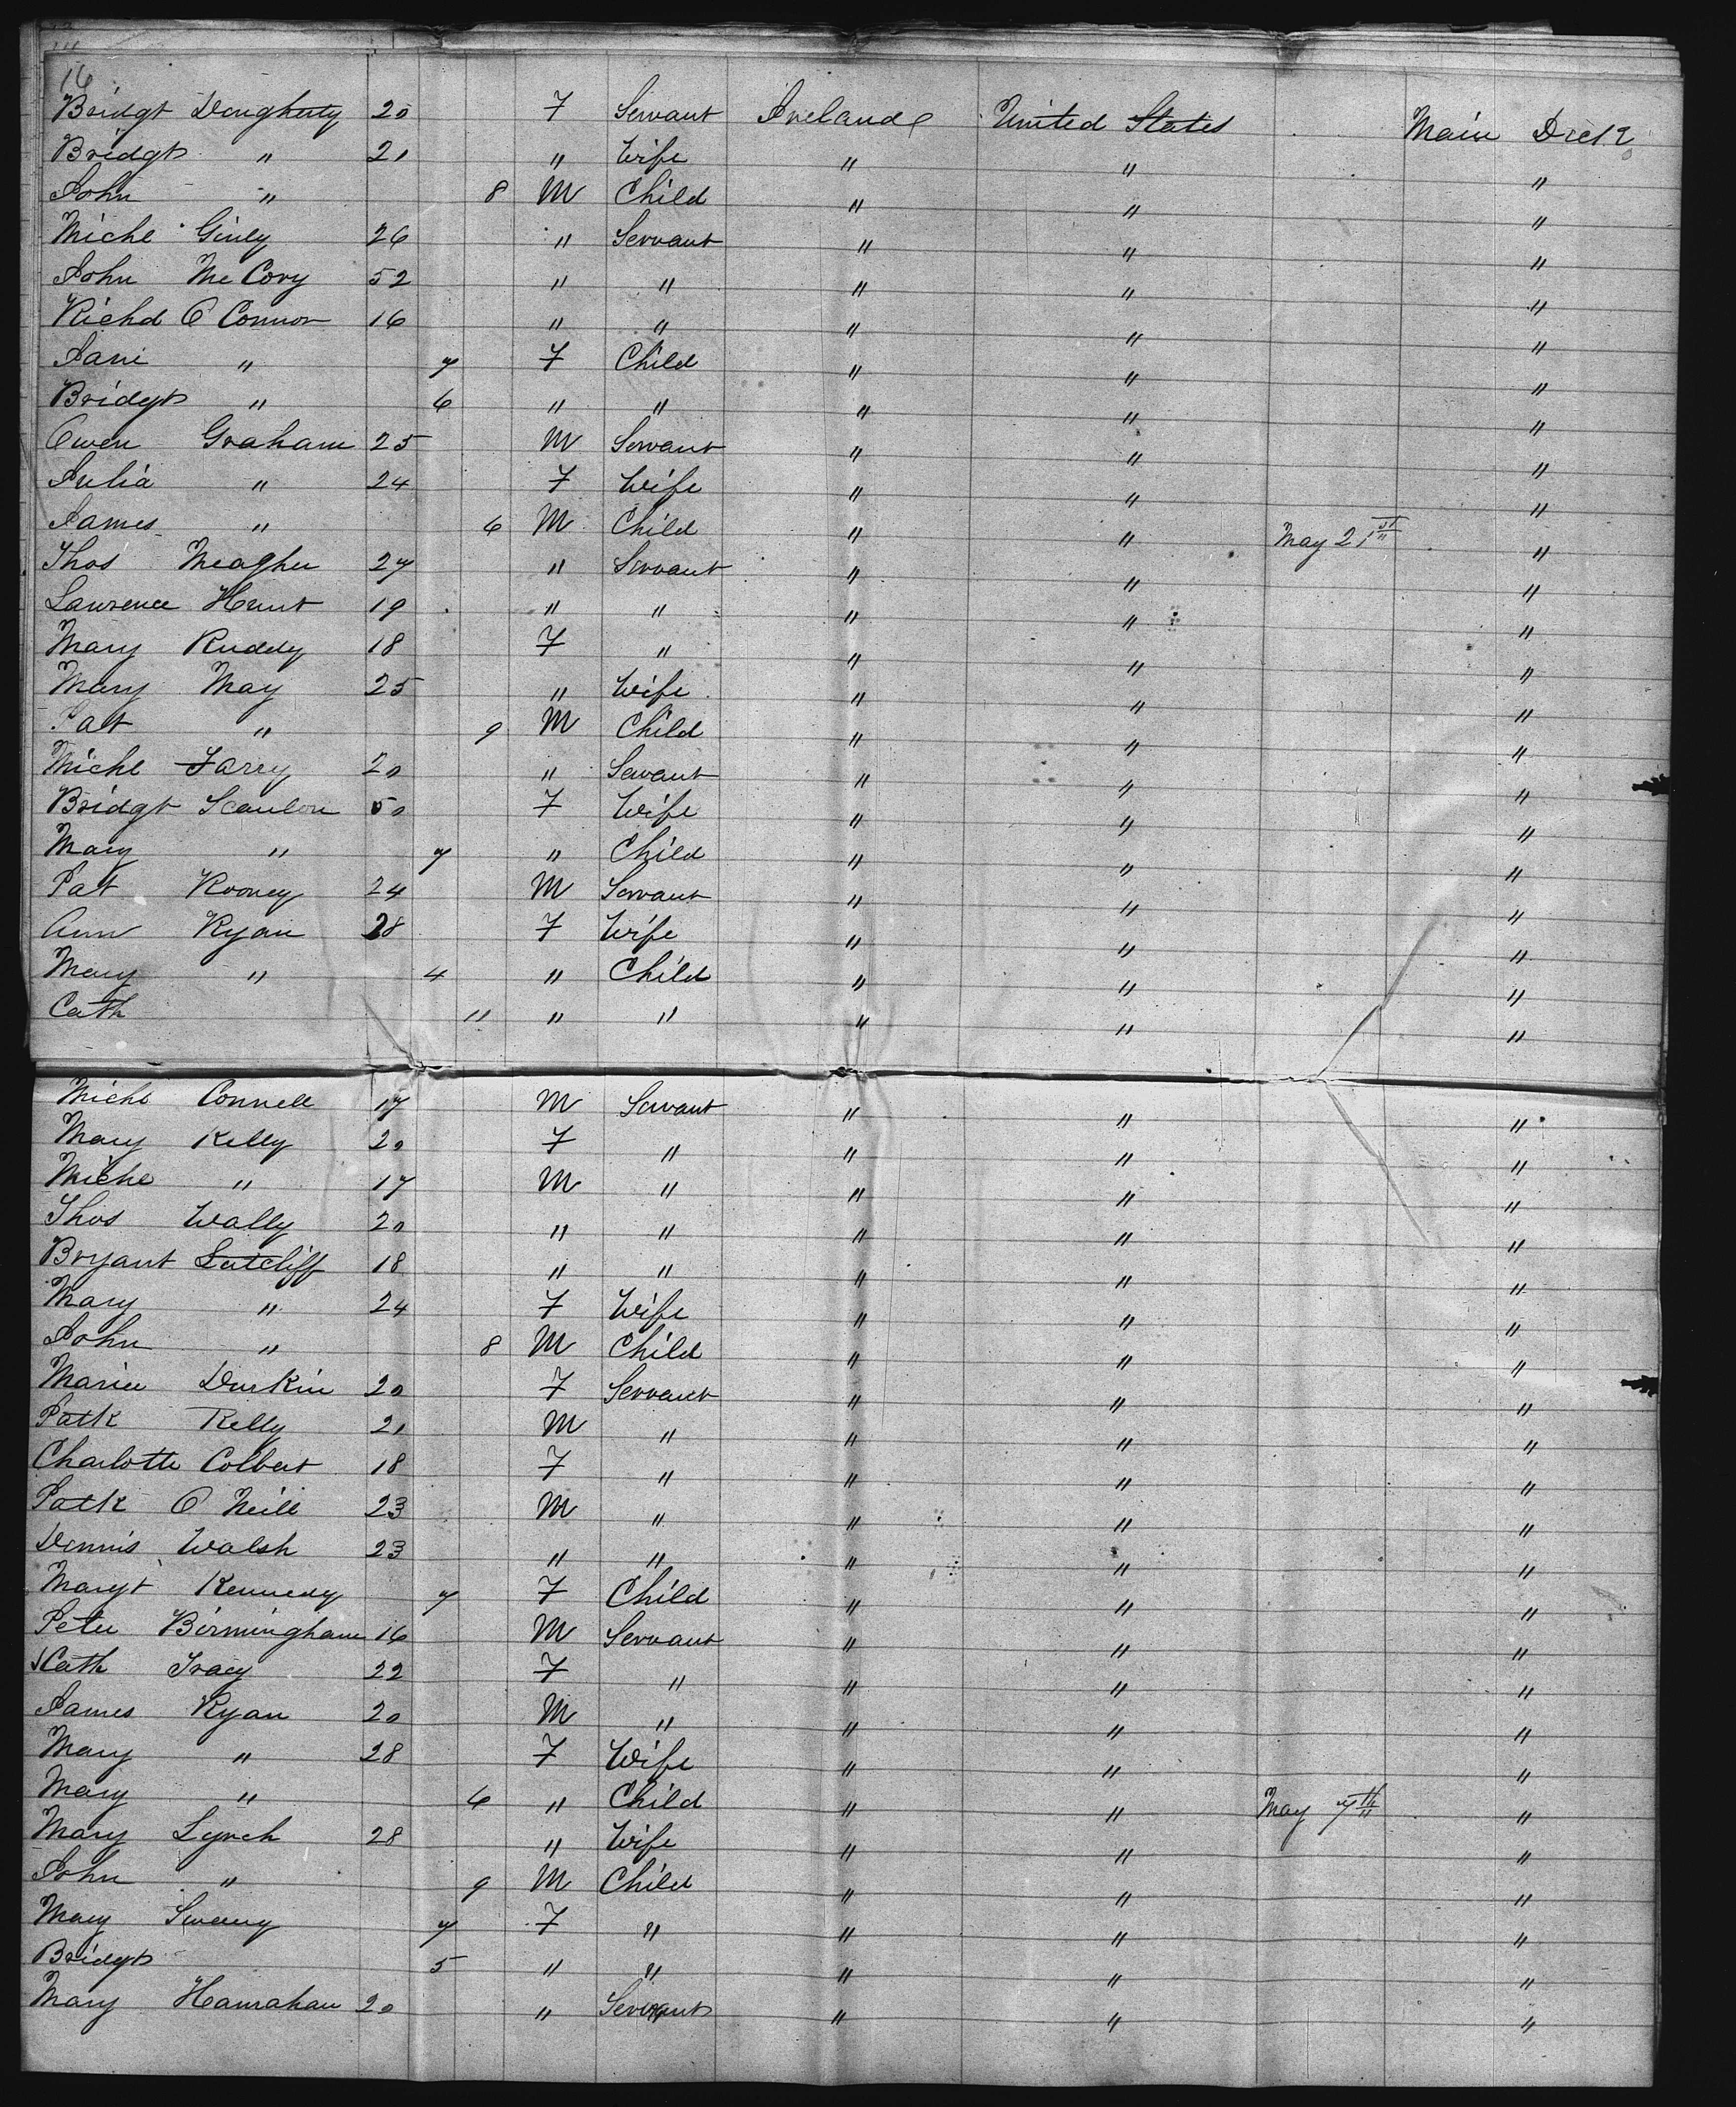 16
Bridgt Dougherty 20 F Servant Ireland United States Main Deck
Bridgt " 21 " Wife " " "
John " 8 M Child " " "
Michl Ginly 26 " Servant " " "
John McCory 52 " " " " "
Richd O Connor 16 " " " " "
Jane " 7 F Child " " "
Bridgt " 6 " " " " "
Owen Graham 25 M Servant " " "
Julia " 24 F Wife " " "
James " 6 M Child " " May 21st "
Thos Meagher 27 " Servant " " "
Lawrence Hunt 19 " " " " "
Mary Ruddy 18 F " " " "
Mary May 25 " Wife " " "
Pat " 9 M Child " " "
Michl Farry 20 " Servant " " "
Bridgt Scanlon 50 F Wife " " "
Mary " 7 " Child " " "
Pat Rooney 24 M Servant " " "
Ann Ryan 28 F Wife " " "
Mary " 4 " Child " " "
Cath 11 " " " " "
Michl Connell 17 M Servant " " "
Mary Kelly 20 F " " " "
Michl " 17 M " " " "
Thos Wally 20 " " " " "
Bryant Sutcliff 18 " " " " "
Mary " 24 F Wife " " "
John " 8 M Child " " "
Maria Durkin 20 F Servant " " "
Patk Kelly 21 M " " " "
Charlotte Colbert 18 F " " " "
Patk O Neill 23 M " " " "
Dennis Walsh 23 " " " " "
Margt Kennedy 7 F Child " " "
Peter Birmingham 16 M Servant " " "
Cath Tracy 22 F " " " "
James Ryan 20 M " " " "
Mary " 28 F Wife " " "
Mary " 6 " Child " " May 7th "
Mary Lynch 28 " Wife " " "
John " 9 M Child " " "
Mary Sweeny 7 F " " " "
Bridgt 5 " " " " "
Mary Hanrahan 20 " Servant " " "